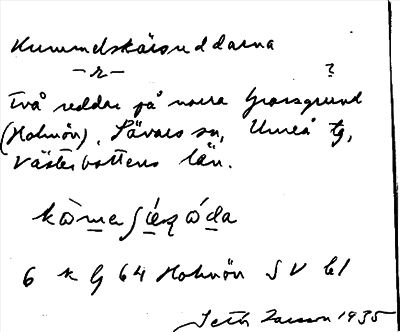 Kummelskärsuddarna
-r- ?
Två uddar på norra Grossgrund
(Holmön), Sävars sn, Umeå tg,
Västerbottens län.
6 k G 64 Holmön SV bl
Seth Larsson 1935